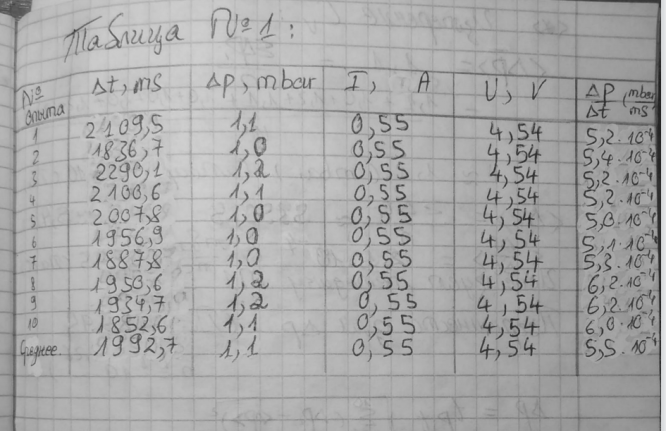 Таблица №1:
№ опыта Δt, ms Δp, mbar I, A U, V Δp/Δt (mbar/ms)
1 2109,5 1,1 0,55 4,54 5,2·10⁻⁴
2 1836,7 1,0 0,55 4,54 5,4·10⁻⁴
3 2290,1 1,2 0,55 4,54 5,2·10⁻⁴
4 2100,6 1,1 0,55 4,54 5,2·10⁻⁴
5 2007,8 1,0 0,55 4,54 5,0·10⁻⁴
6 1956,9 1,0 0,55 4,54 5,1·10⁻⁴
7 1887,8 1,0 0,55 4,54 5,3·10⁻⁴
8 1950,6 1,2 0,55 4,54 6,2·10⁻⁴
9 1934,7 1,2 0,55 4,54 6,2·10⁻⁴
10 1852,6 1,1 0,55 4,54 6,0·10⁻⁴
Среднее. 1992,7 1,1 0,55 4,54 5,5·10⁻⁴